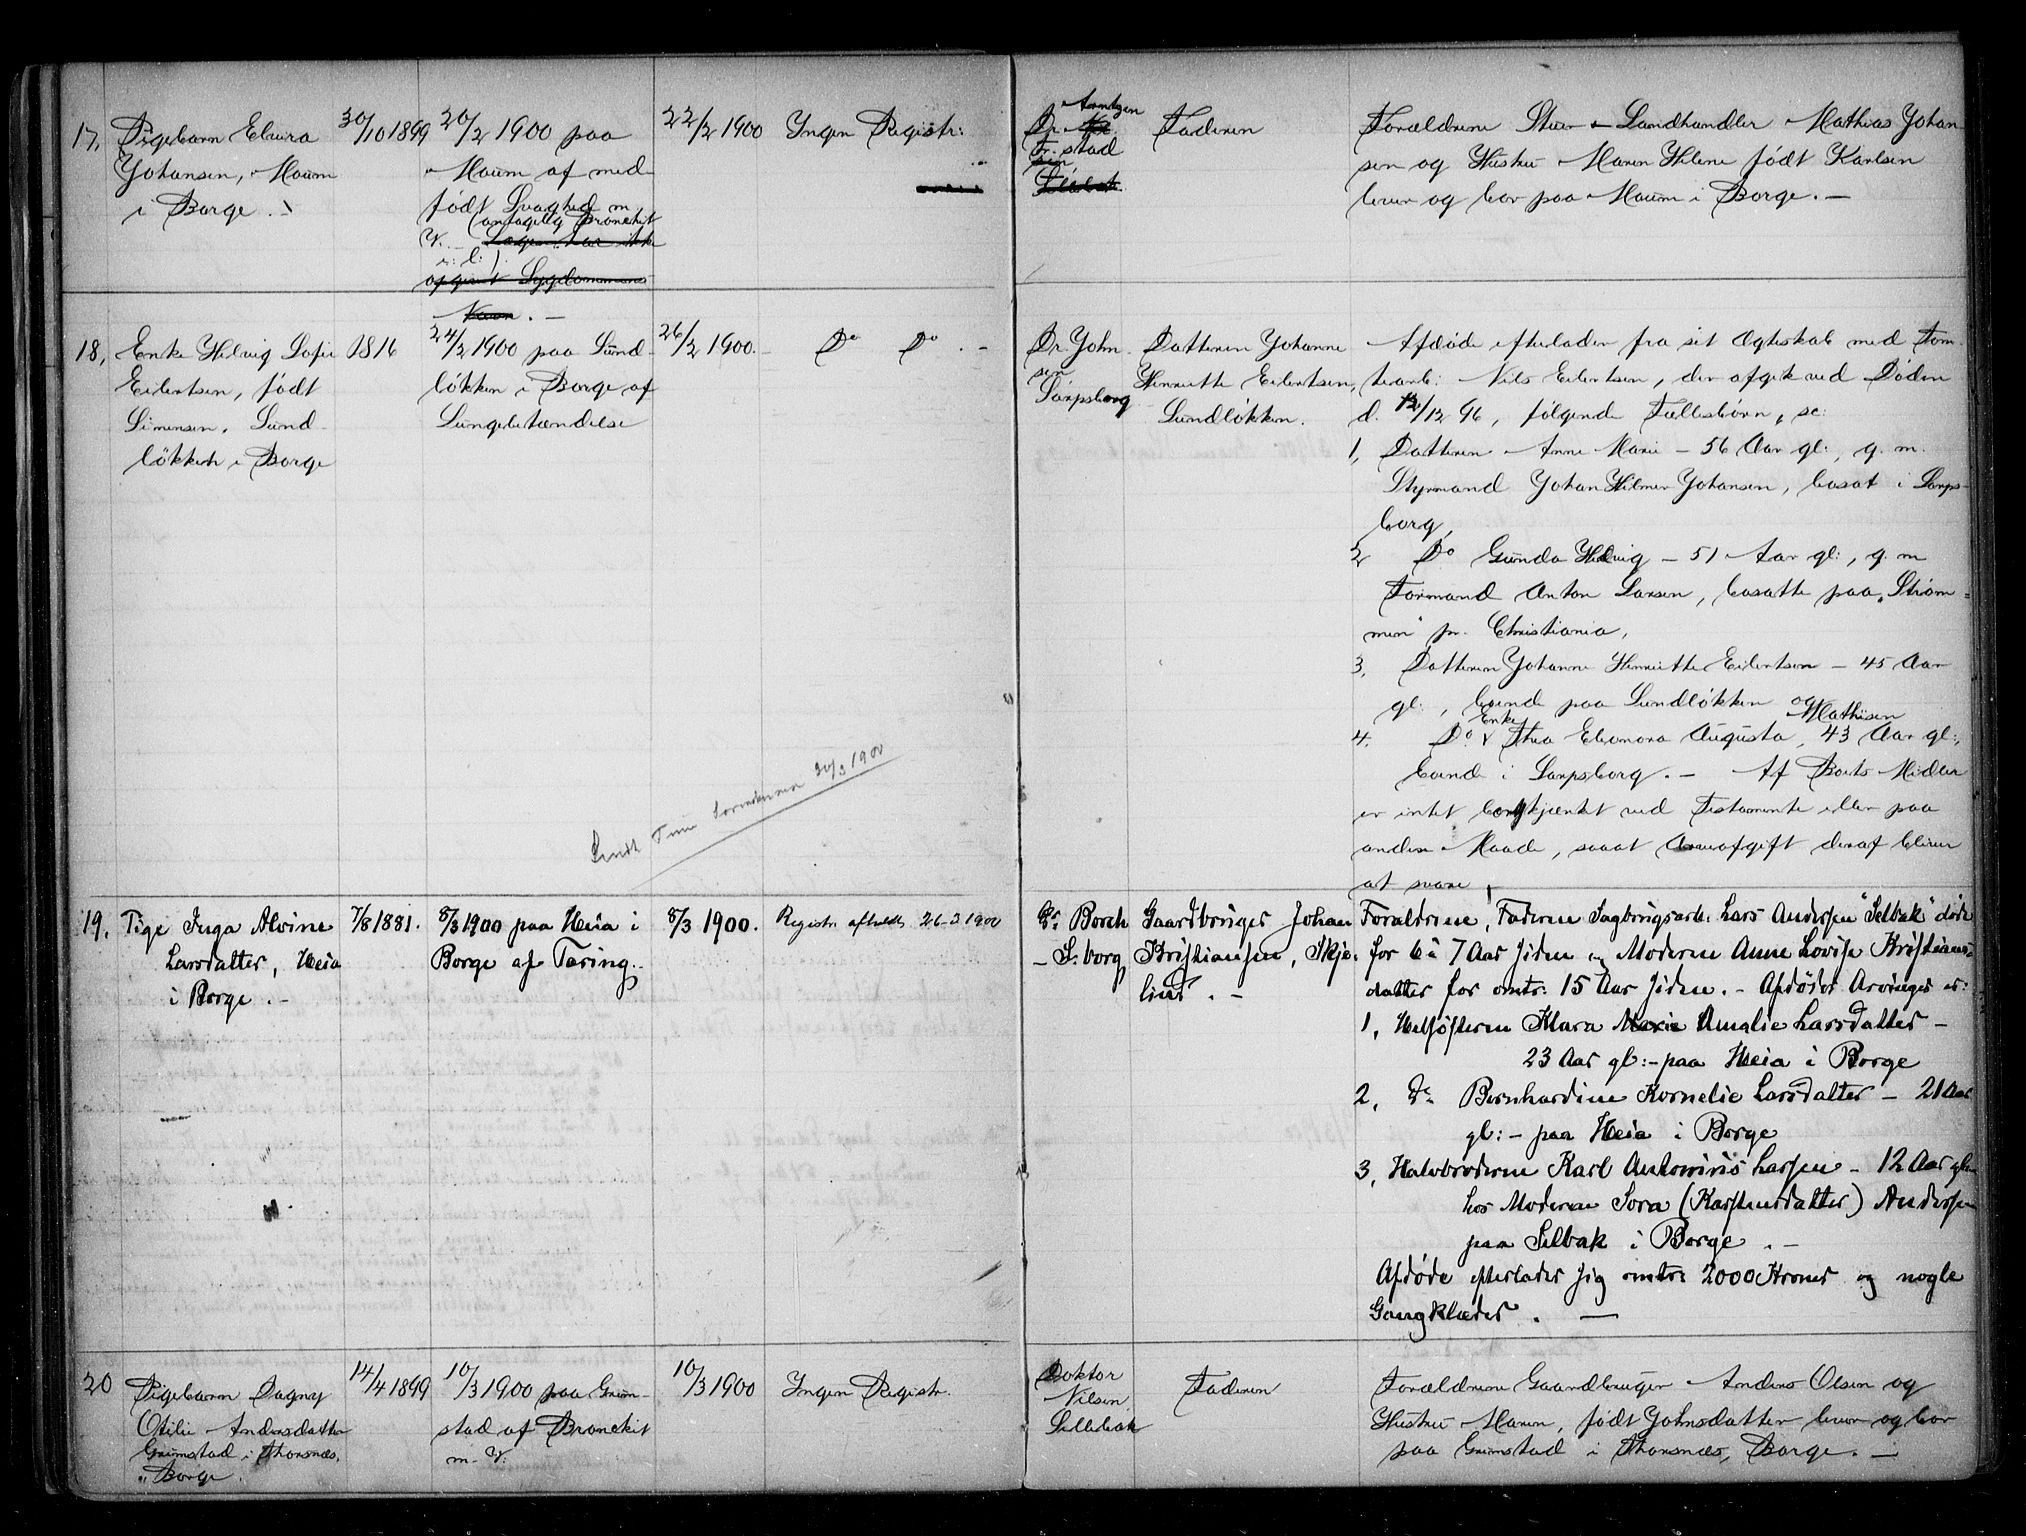 17, Pigebarn Elvira
Johansen, Maum
i Borge.
30/10 1899
20/2 1900 paa
Maum af med
født Svaghed m
(antagelig Bronekit
V. Lægen har ikke
m: l: ).
opgivet Sygdommens
Navn. —
22/2 1900
Ingen Registr:
Arntzen
Dr.
Fr. stad
Faderen
Forældrene Stuer & Landhandler Mathias Johan
sen og Hustru Maren Helene født Karlsen
lever og bor paa Maum i Borge. —
18, Enke Helvig Sofie
Eilertsen, født
Simensen, Lund-
løkken i Borge
1816
24/2 1900 paa Lund-
løkken i Borge af
Lungebetændelse
26/2 1900. -
Do Do . -
Dr John
sen
Sarpsborg
Datteren Johanne
Henriette Eilertsen,
Lundløkken.
Afdøde efterlader fra sit Ægteskab med Tøm-
merarb: Nils Eilertsen, der afgik ved Døden
d. 12/12 96, følgende Fællesbørn, sc:
1, Datteren Anne Marie – 56 Aar gl:, g. m.
Styrmand Johan Hilmer Johansen, bosat i Sarps-
borg,
2 Do Gunda Helvig – 51 Aar gl:, g. m
Formand Anton Larsen, bosatte paa „Strøm-
men" pr. Christiania,
3, Datteren Johanne Henriette Eilertsen – 45 Aar
gl:, boende paa Lundløkken og
Enke Mathisen
4. Do. Thea Eleonora Augusta, 43 Aar gl:,
boende i Sarpsborg. – Af Boets Midler
er intet bortskjænket ved Testamente eller paa
anden Maade, saaat Arveafgift deraf bliver
at svare
Sendt 30/3 1900
19, Pige Inga Alvine
Larsdatter, Heia
i Borge. -
7/8 1881.
8/3 1900 paa Heia i
Borge af Tæring.
8/3 1900.
Registr. afholdt 26-3 1900
Dr. Borch
– S. borg
Gaardbruger Johan
Kristiansen, Skje-
lin. –
Forældrene, Faderen Sagbrugsarb. Lars Andersen "Selbak" døde
for 6 à 7 Aar siden og Moderen Anne Lovise Kristians-
datter for omtr: 15 Aar siden. – Afdødes Arvinger er:
1, Helsøsteren Klara Marie Amalie Larsdatter –
23 Aar gl: – paa Heia i Borge
2, Do Bernhardine Kornelie Larsdatter – 21 Aar
gl: – paa Heia i Borge
3, Halvbroderen Karl Antonius Larsen – 12 Aar glm
hos Moderen Sora (Karstensdatter) Andersen
paa Selbak i Borge. –
Afdøde efterlader sig omtr: 2000 Kroner og nogle
Gangklæder. —
20 Pigebarn Dagny
Otilie Andersdatter
Grimstad i Thorsnæs,
„ Borge.
14/4 1899
10/3 1900 paa Grim-
stad af Bronekit
m. V.
10/3 1900
Ingen Registr.
Doktor
Nilsen
Sellebak
Faderen
Forældrene Gaardbruger Anders Olsen og
Hustru Maren, født Johnsdatter lever og bor
paa Grimstad i Thorsnæs, Borge. —